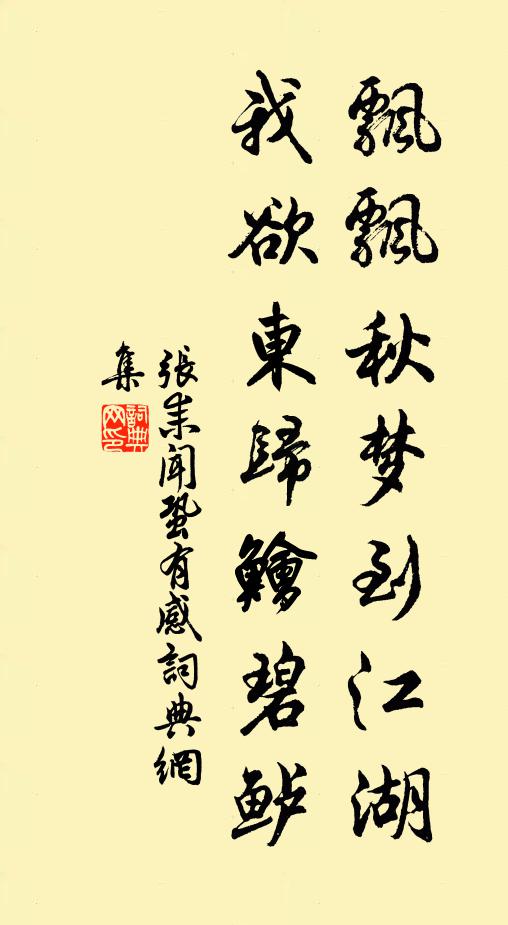 飄飄秋梦到江湖
我欲東歸鱠碧鲈
張耒聞蛩有感詞典網
集
詞典
网印